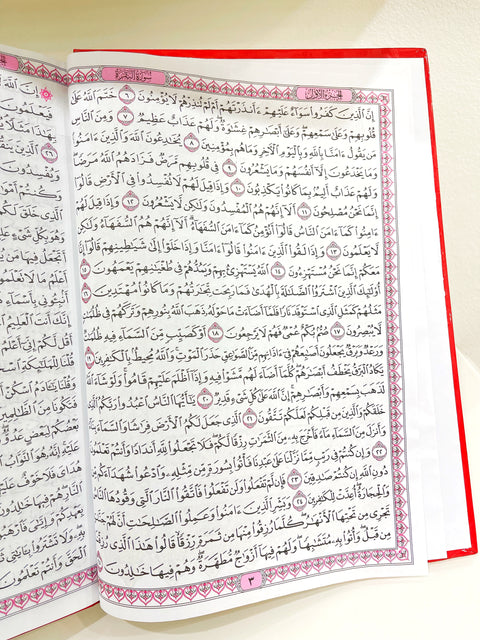 الجزء الاول
سورة البقرة
إِنَّ الَّذِينَ كَفَرُوا سَوَاءٌ عَلَيْهِمْ ءَأَنذَرْتَهُمْ أَمْ لَمْ تُنذِرْهُمْ لَا يُؤْمِنُونَ ٦ خَتَمَ اللَّهُ عَلَىٰ
قُلُوبِهِمْ وَعَلَىٰ سَمْعِهِمْ وَعَلَىٰ أَبْصَارِهِمْ غِشَاوَةٌ وَلَهُمْ عَذَابٌ عَظِيمٌ ٧ وَمِنَ النَّاسِ
مَن يَقُولُ ءَامَنَّا بِاللَّهِ وَبِالْيَوْمِ الْآخِرِ وَمَا هُم بِمُؤْمِنِينَ ٨ يُخَادِعُونَ اللَّهَ وَالَّذِينَ ءَامَنُوا
وَمَا يَخْدَعُونَ إِلَّا أَنفُسَهُمْ وَمَا يَشْعُرُونَ ٩ فِي قُلُوبِهِم مَّرَضٌ فَزَادَهُمُ اللَّهُ مَرَضًا
وَلَهُمْ عَذَابٌ أَلِيمٌ بِمَا كَانُوا يَكْذِبُونَ ١٠ وَإِذَا قِيلَ لَهُمْ لَا تُفْسِدُوا فِي الْأَرْضِ قَالُوا
إِنَّمَا نَحْنُ مُصْلِحُونَ ١١ أَلَا إِنَّهُمْ هُمُ الْمُفْسِدُونَ وَلَٰكِن لَّا يَشْعُرُونَ ١٢ وَإِذَا قِيلَ لَهُمْ
ءَامِنُوا كَمَا ءَامَنَ النَّاسُ قَالُوا أَنُؤْمِنُ كَمَا ءَامَنَ السُّفَهَاءُ أَلَا إِنَّهُمْ هُمُ السُّفَهَاءُ وَلَٰكِن
لَّا يَعْلَمُونَ ١٣ وَإِذَا لَقُوا الَّذِينَ ءَامَنُوا قَالُوا ءَامَنَّا وَإِذَا خَلَوْا إِلَىٰ شَيَاطِينِهِمْ قَالُوا إِنَّا
مَعَكُمْ إِنَّمَا نَحْنُ مُسْتَهْزِءُونَ ١٤ اللَّهُ يَسْتَهْزِئُ بِهِمْ وَيَمُدُّهُمْ فِي طُغْيَانِهِمْ يَعْمَهُونَ ١٥
أُولَٰئِكَ الَّذِينَ اشْتَرَوُا الضَّلَالَةَ بِالْهُدَىٰ فَمَا رَبِحَت تِّجَارَتُهُمْ وَمَا كَانُوا مُهْتَدِينَ ١٦
مَثَلُهُمْ كَمَثَلِ الَّذِي اسْتَوْقَدَ نَارًا فَلَمَّا أَضَاءَتْ مَا حَوْلَهُ ذَهَبَ اللَّهُ بِنُورِهِمْ وَتَرَكَهُمْ فِي ظُلُمَاتٍ
لَّا يُبْصِرُونَ ١٧ صُمٌّ بُكْمٌ عُمْيٌ فَهُمْ لَا يَرْجِعُونَ ١٨ أَوْ كَصَيِّبٍ مِّنَ السَّمَاءِ فِيهِ ظُلُمَاتٌ
وَرَعْدٌ وَبَرْقٌ يَجْعَلُونَ أَصَابِعَهُمْ فِي ءَاذَانِهِم مِّنَ الصَّوَاعِقِ حَذَرَ الْمَوْتِ وَاللَّهُ مُحِيطٌ بِالْكَافِرِينَ ١٩
يَكَادُ الْبَرْقُ يَخْطَفُ أَبْصَارَهُمْ كُلَّمَا أَضَاءَ لَهُم مَّشَوْا فِيهِ وَإِذَا أَظْلَمَ عَلَيْهِمْ قَامُوا وَلَوْ شَاءَ اللَّهُ
لَذَهَبَ بِسَمْعِهِمْ وَأَبْصَارِهِمْ إِنَّ اللَّهَ عَلَىٰ كُلِّ شَيْءٍ قَدِيرٌ ٢٠ يَا أَيُّهَا النَّاسُ اعْبُدُوا رَبَّكُمُ الَّذِي
خَلَقَكُمْ وَالَّذِينَ مِن قَبْلِكُمْ لَعَلَّكُمْ تَتَّقُونَ ٢١ الَّذِي جَعَلَ لَكُمُ الْأَرْضَ فِرَاشًا وَالسَّمَاءَ بِنَاءً
وَأَنزَلَ مِنَ السَّمَاءِ مَاءً فَأَخْرَجَ بِهِ مِنَ الثَّمَرَاتِ رِزْقًا لَّكُمْ فَلَا تَجْعَلُوا لِلَّهِ أَندَادًا وَأَنتُمْ تَعْلَمُونَ ٢٢
وَإِن كُنتُمْ فِي رَيْبٍ مِّمَّا نَزَّلْنَا عَلَىٰ عَبْدِنَا فَأْتُوا بِسُورَةٍ مِّن مِّثْلِهِ وَادْعُوا شُهَدَاءَكُم مِّن
دُونِ اللَّهِ إِن كُنتُمْ صَادِقِينَ ٢٣ فَإِن لَّمْ تَفْعَلُوا وَلَن تَفْعَلُوا فَاتَّقُوا النَّارَ الَّتِي وَقُودُهَا النَّاسُ
وَالْحِجَارَةُ أُعِدَّتْ لِلْكَافِرِينَ ٢٤ وَبَشِّرِ الَّذِينَ ءَامَنُوا وَعَمِلُوا الصَّالِحَاتِ أَنَّ لَهُمْ جَنَّاتٍ
تَجْرِي مِن تَحْتِهَا الْأَنْهَارُ كُلَّمَا رُزِقُوا مِنْهَا مِن ثَمَرَةٍ رِّزْقًا قَالُوا هَٰذَا الَّذِي رُزِقْنَا
مِن قَبْلُ وَأُتُوا بِهِ مُتَشَابِهًا وَلَهُمْ فِيهَا أَزْوَاجٌ مُّطَهَّرَةٌ وَهُمْ فِيهَا خَالِدُونَ
٣
إِنَّ اللَّهَ
فَيَعْلَمُونَ
بِهَٰذَا مَثَلًا
٢٦ الَّذِينَ
وَيُفْسِدُونَ
وَكُنتُمْ أَمْوَاتًا
الَّذِي خَلَقَ لَكُم
وَهُوَ بِكُلِّ شَيْءٍ
أَتَجْعَلُ فِيهَا مَن
أَعْلَمُ مَا لَا
أَنبِئُونِي بِأَسْمَاءِ
إِنَّكَ أَنتَ الْعَلِيمُ
لَّكُمْ إِنِّي أَعْلَمُ
قُلْنَا لِلْمَلَائِكَةِ
وَقُلْنَا يَا آدَمُ اسْكُنْ
فَتَكُونَا مِنَ الظَّالِمِينَ
بَعْضُكُمْ لِبَعْضٍ عَدُوٌّ
عَلَيْهِ إِنَّهُ هُوَ التَّوَّابُ
هُدَايَ فَلَا خَوْفٌ
النَّارِ هُمْ فِيهَا خَالِدُونَ
بِعَهْدِكُمْ وَإِيَّايَ فَارْهَبُونِ
بِهِ وَلَا تَشْتَرُوا بِآيَاتِي
الْحَقَّ وَأَنتُمْ تَعْلَمُونَ